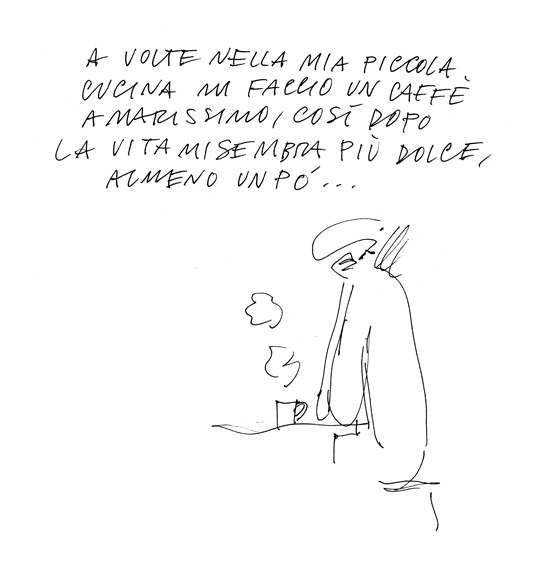 A VOLTE NELLA MIA PICCOLA
CUCINA MI FACCIO UN CAFFÈ
AMARISSIMO, COSÌ DOPO
LA VITA MI SEMBRA PIÙ DOLCE,
ALMENO UN PÓ...